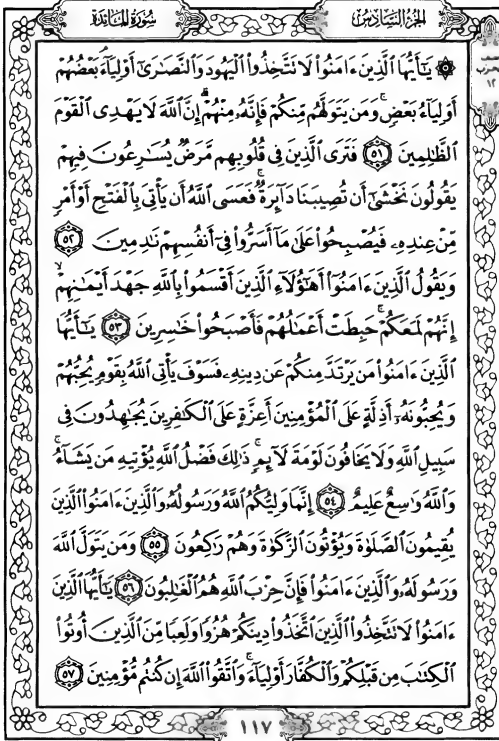 الجزء السادس
سورة المائدة
۞ يَـٰٓأَيُّهَا ٱلَّذِينَ ءَامَنُوا۟ لَا تَتَّخِذُوا۟ ٱلْيَهُودَ وَٱلنَّصَـٰرَىٰٓ أَوْلِيَآءَ ۘ بَعْضُهُمْ
أَوْلِيَآءُ بَعْضٍ ۚ وَمَن يَتَوَلَّهُم مِّنكُمْ فَإِنَّهُۥ مِنْهُمْ ۗ إِنَّ ٱللَّهَ لَا يَهْدِى ٱلْقَوْمَ
ٱلظَّـٰلِمِينَ ٥١ فَتَرَى ٱلَّذِينَ فِى قُلُوبِهِم مَّرَضٌ يُسَـٰرِعُونَ فِيهِمْ
يَقُولُونَ نَخْشَىٰٓ أَن تُصِيبَنَا دَآئِرَةٌ ۚ فَعَسَى ٱللَّهُ أَن يَأْتِىَ بِٱلْفَتْحِ أَوْ أَمْرٍ
مِّنْ عِندِهِۦ فَيُصْبِحُوا۟ عَلَىٰ مَآ أَسَرُّوا۟ فِىٓ أَنفُسِهِمْ نَـٰدِمِينَ ٥٢
وَيَقُولُ ٱلَّذِينَ ءَامَنُوٓا۟ أَهَـٰٓؤُلَآءِ ٱلَّذِينَ أَقْسَمُوا۟ بِٱللَّهِ جَهْدَ أَيْمَـٰنِهِمْ ۙ
إِنَّهُمْ لَمَعَكُمْ ۚ حَبِطَتْ أَعْمَـٰلُهُمْ فَأَصْبَحُوا۟ خَـٰسِرِينَ ٥٣ يَـٰٓأَيُّهَا
ٱلَّذِينَ ءَامَنُوا۟ مَن يَرْتَدَّ مِنكُمْ عَن دِينِهِۦ فَسَوْفَ يَأْتِى ٱللَّهُ بِقَوْمٍ يُحِبُّهُمْ
وَيُحِبُّونَهُۥٓ أَذِلَّةٍ عَلَى ٱلْمُؤْمِنِينَ أَعِزَّةٍ عَلَى ٱلْكَـٰفِرِينَ يُجَـٰهِدُونَ فِى
سَبِيلِ ٱللَّهِ وَلَا يَخَافُونَ لَوْمَةَ لَآئِمٍ ۚ ذَٰلِكَ فَضْلُ ٱللَّهِ يُؤْتِيهِ مَن يَشَآءُ ۚ
وَٱللَّهُ وَٰسِعٌ عَلِيمٌ ٥٤ إِنَّمَا وَلِيُّكُمُ ٱللَّهُ وَرَسُولُهُۥ وَٱلَّذِينَ ءَامَنُوا۟ ٱلَّذِينَ
يُقِيمُونَ ٱلصَّلَوٰةَ وَيُؤْتُونَ ٱلزَّكَوٰةَ وَهُمْ رَٰكِعُونَ ٥٥ وَمَن يَتَوَلَّ ٱللَّهَ
وَرَسُولَهُۥ وَٱلَّذِينَ ءَامَنُوا۟ فَإِنَّ حِزْبَ ٱللَّهِ هُمُ ٱلْغَـٰلِبُونَ ٥٦ يَـٰٓأَيُّهَا ٱلَّذِينَ
ءَامَنُوا۟ لَا تَتَّخِذُوا۟ ٱلَّذِينَ ٱتَّخَذُوا۟ دِينَكُمْ هُزُوًا وَلَعِبًا مِّنَ ٱلَّذِينَ أُوتُوا۟
ٱلْكِتَـٰبَ مِن قَبْلِكُمْ وَٱلْكُفَّارَ أَوْلِيَآءَ ۚ وَٱتَّقُوا۟ ٱللَّهَ إِن كُنتُم مُّؤْمِنِينَ ٥٧
١١٧